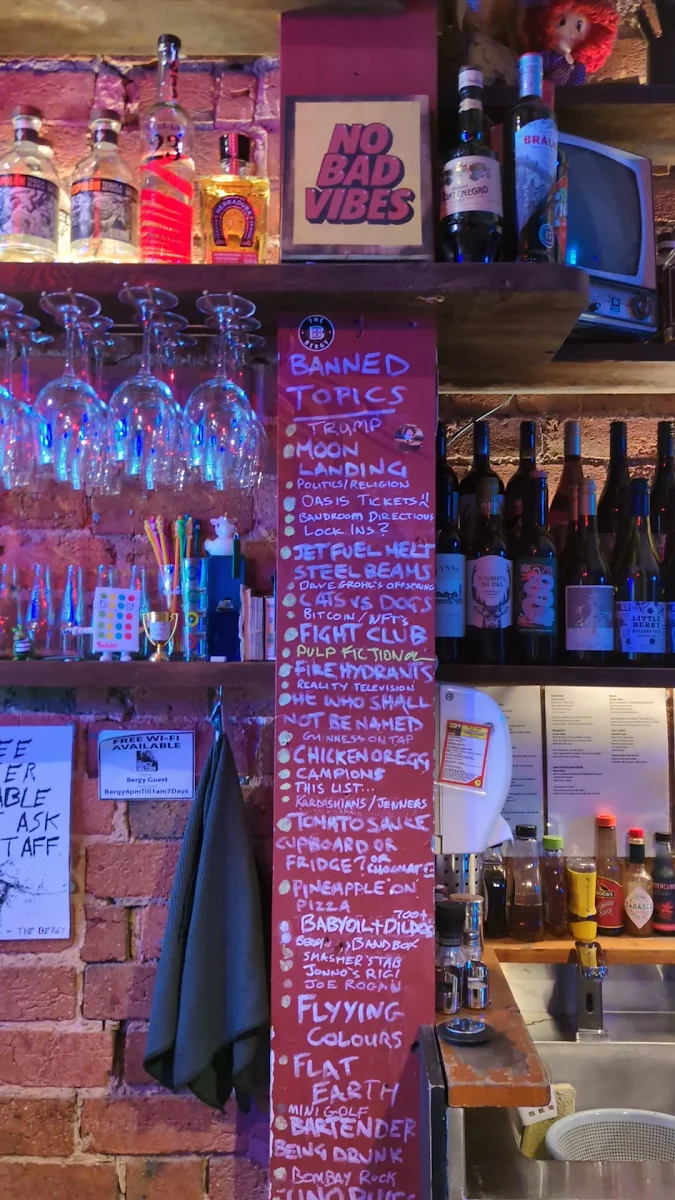 NO
BAD
VIBES
23
HERRADURA
MONTENEGRO
THE
B
BERGY
BANNED
TOPICS
TRUMP
MOON
LANDING
POLITICS/RELIGION
OASIS TICKETS!!
BANDROOM DIRECTIONS
LOCK INS?
JET FUEL MELT
STEEL BEAMS
DAVE GROHL'S OFFSPRING
CATS VS DOGS
BITCOIN/NFT'S
FIGHT CLUB
PULP FICTION
FIREHYDRANTS
REALITY TELEVISION
HE WHO SHALL
NOT BE NAMED
GUINNESS ON TAP
CHICKEN OR EGG
CAMPIONS
THIS LIST...
KARDASHIANS/JENNERS
TOMATO SAUCE
CUPBOARD OR
FRIDGE? OR
PINEAPPLE ON
PIZZA
700+
BABYOIL + DILDOS
BERGY BANDBOX
SMASHER'S TAB
JONNO'S RIG!
JOE ROGAN
FLYYING
COLOURS
FLAT
EARTH
MINI GOLF
BARTENDER
BEING DRUNK
BOMBAY ROCK
LITTLE
BERRY
TABASCO
FREE WI-FI
AVAILABLE
Bergy Guest
Bergy4pmTill1am7Days
ASK
- THE BERGY